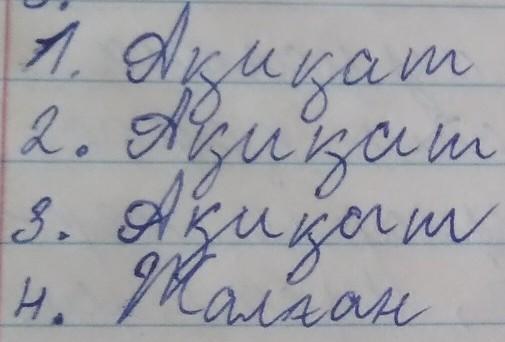 1. Ақиқат
2. Ақиқат
3. Ақиқат
4. Жалған